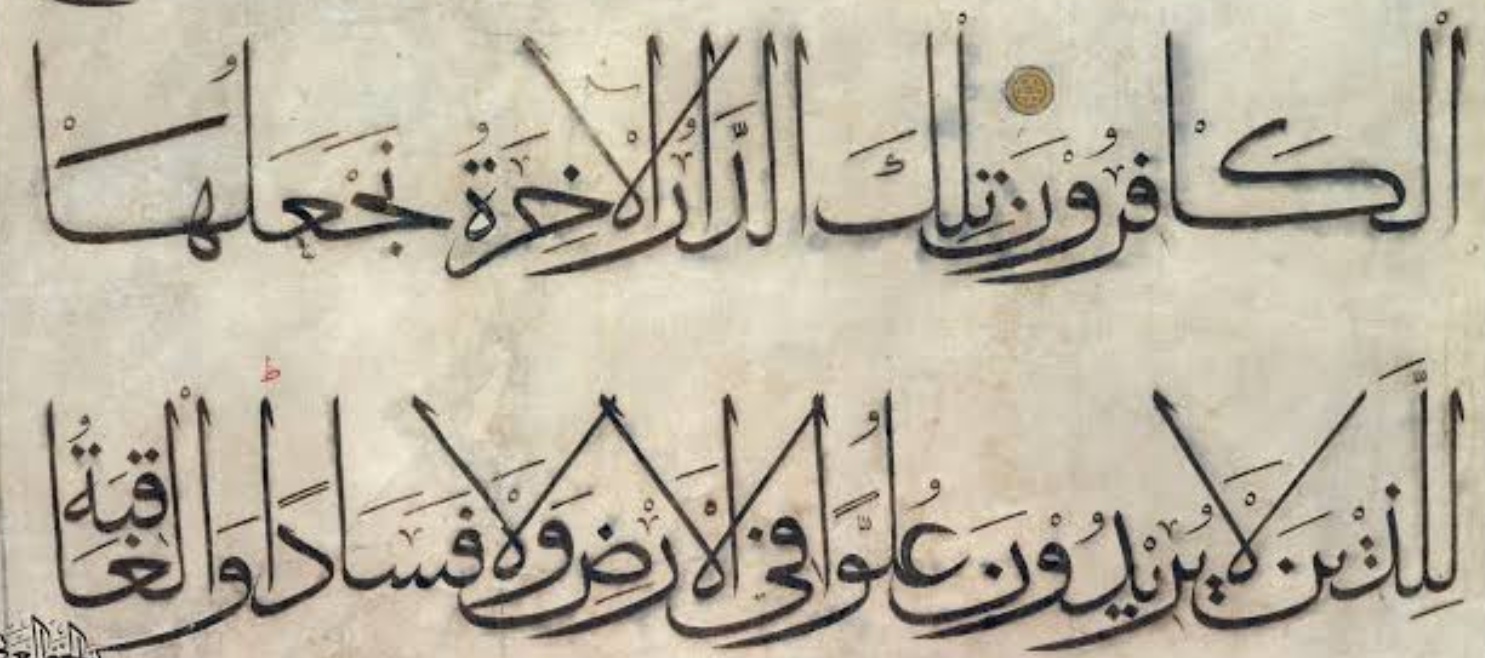 الْكَافِرُونَ تِلْكَ الدَّارُ الْاٰخِرَةُ نَجْعَلُهَا
لِلَّذِينَ لَا يُرِيدُونَ عُلُوًّا فِي الْاَرْضِ وَلَا فَسَادًا وَالْعَاقِبَةُ